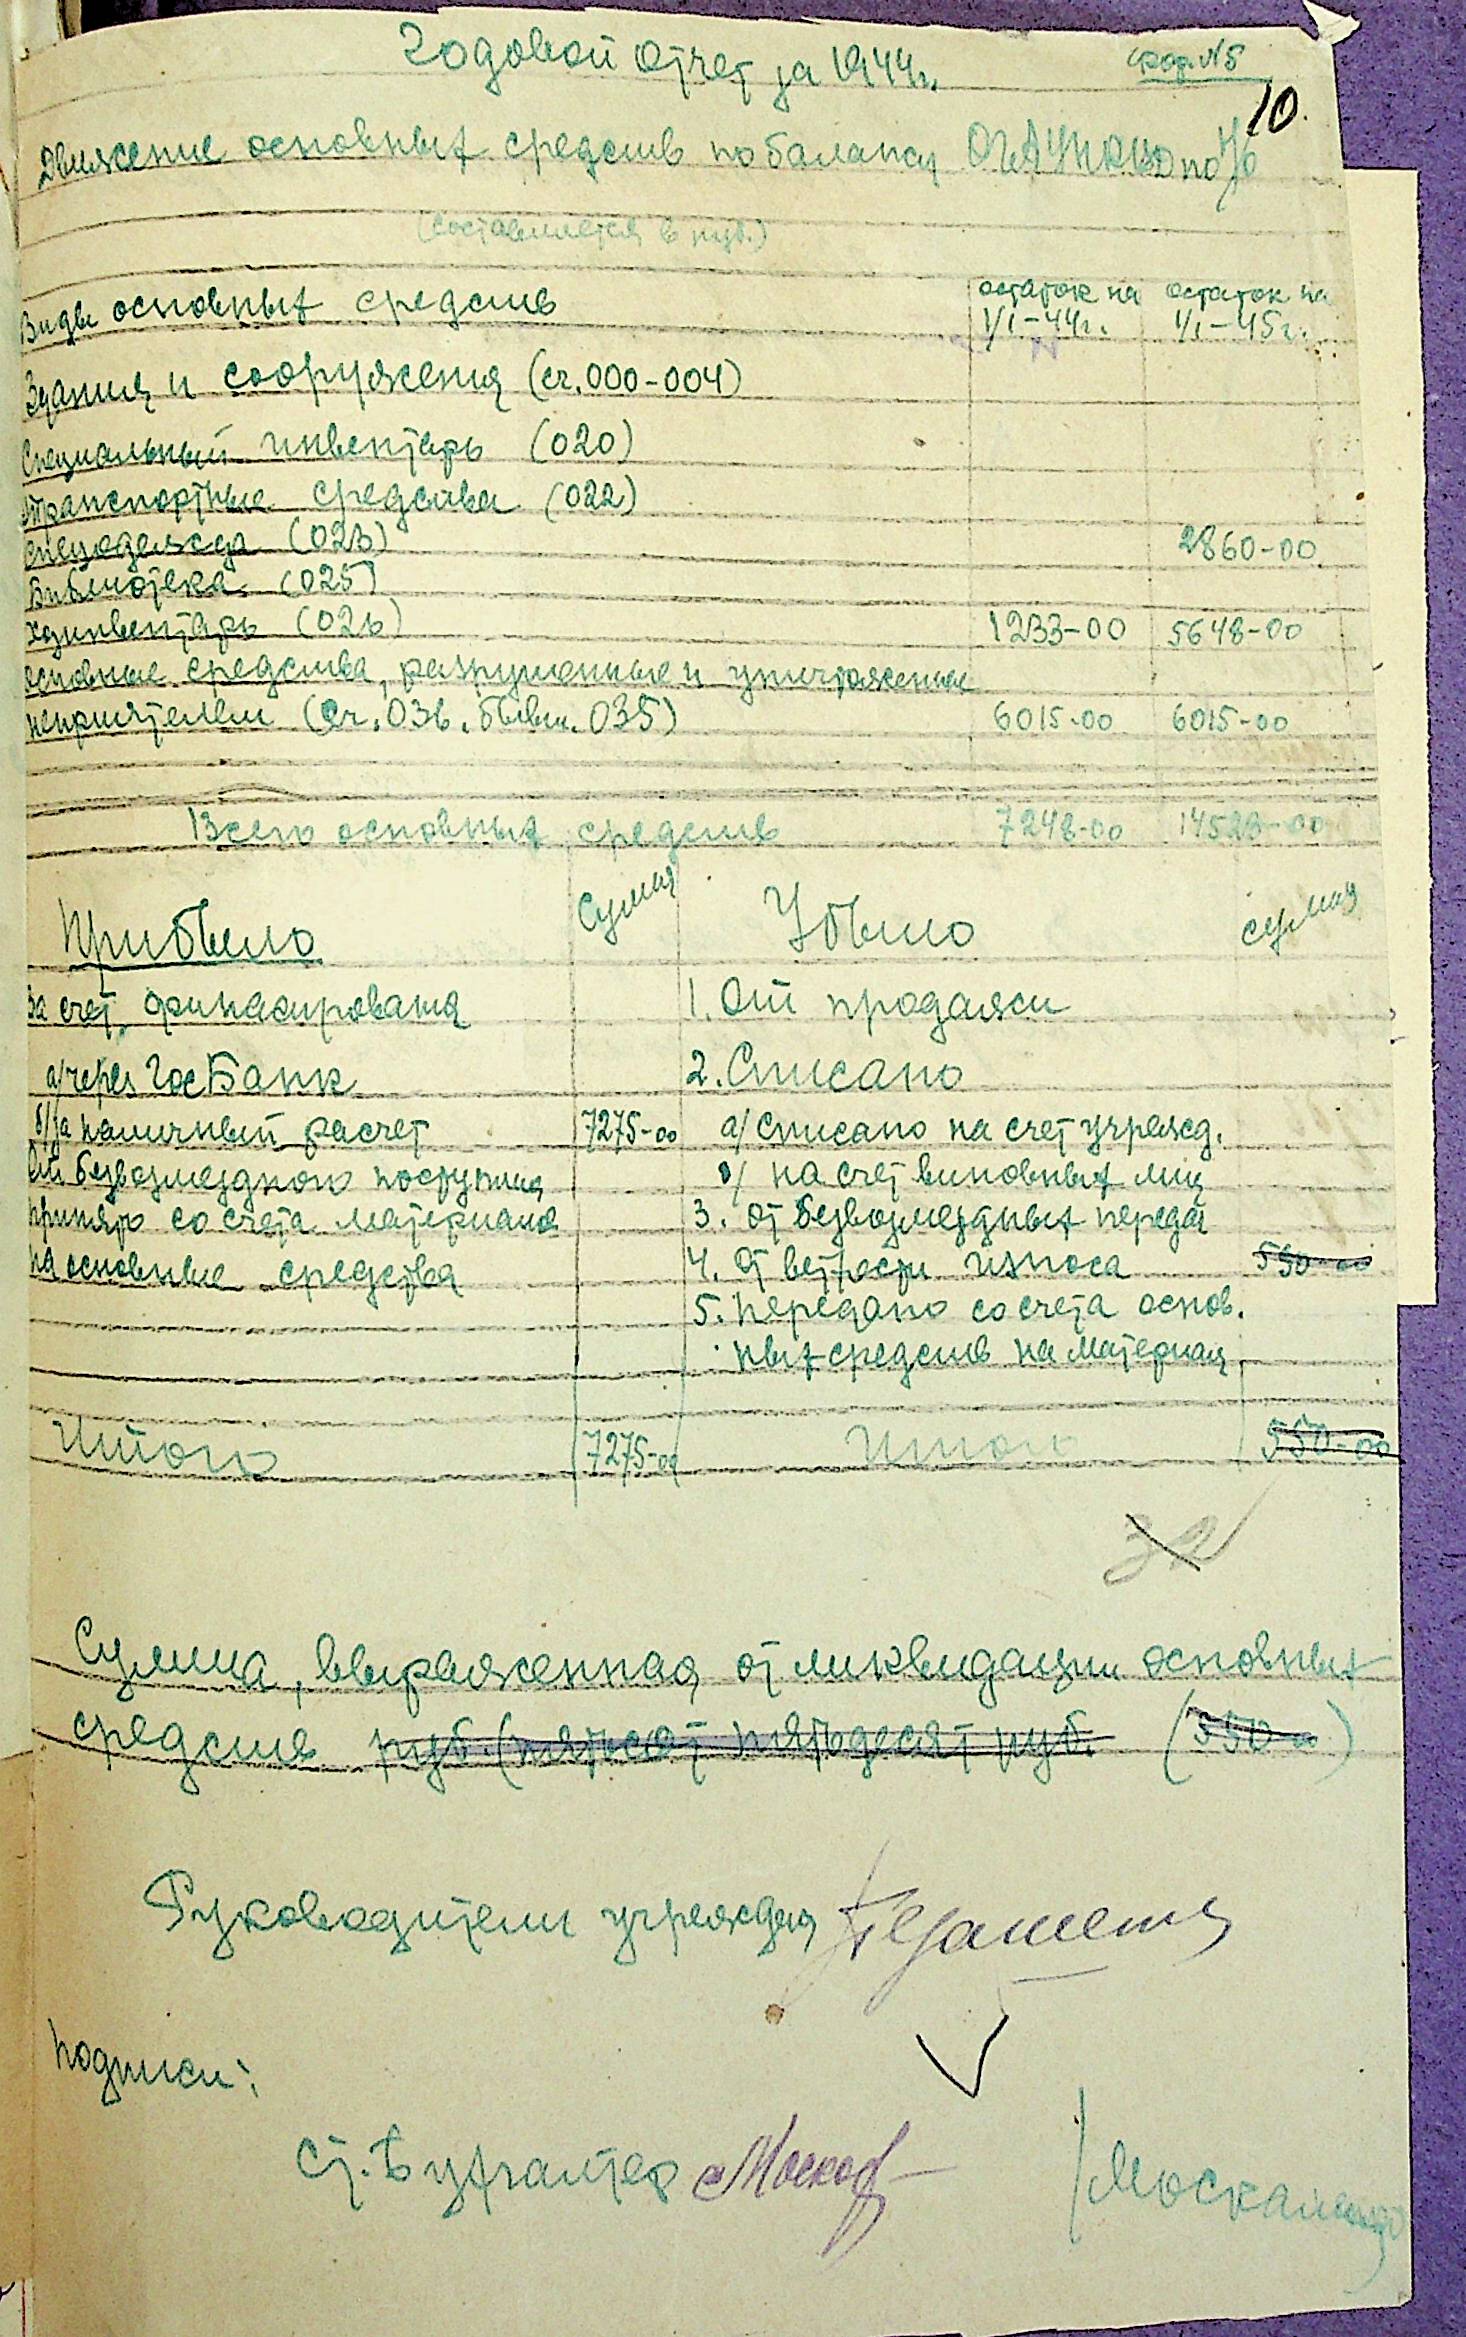 Годовой отчет за 1944г.
фор. №5
10.
Движение основных средств по балансу
(составляется в руб.)
Виды основных средств остаток на 1/I-44г. остаток на 1/I-45г.
Здания и сооружения (сч. 000-004)
Специальный инвентарь (020)
Транспортные средства (022)
спецодежда (023) 2860-00
Библиотека (025)
Хозинвентарь (026) 1233-00 5648-00
основные средства, разрушенные и уничтоженные
неприятелем (сч. 036, бывш. 035) 6015-00 6015-00
Всего основных средств 7248-00 14523-00
Прибыло Сумма Убыло сумма
за счет финасирования 1. От продажи
а/ через ГосБанк 2. Списано
б/ за наличный расчет 7275-00 а/ списано на счет учрежд.
От безвозмездного поступлия в/ на счет виновных лиц
принято со счета материалов 3. от безвозмездных передач
на основные средства 4. От ветхости износа 550-00
5. Передано со счета основ.
ных средств на материал
Итого 7275-00 Итого 550-00
32
Сумма, выраженная от ликвидации основных
средств руб. (пятьсот пятьдесят руб. (550-00)
Руководители учреждения
Подписи:
Ст. Бухгалтер Москов /Москаленко